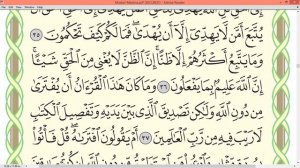 Mushaf Madinah.pdf (SECURED) - Adobe Reader
يُتَّبَعَ أَمَّن لَّا يَهِدِّىٓ إِلَّآ أَن يُهْدَىٰ ۖ فَمَا لَكُمْ كَيْفَ تَحْكُمُونَ ٣٥
وَمَا يَتَّبِعُ أَكْثَرُهُمْ إِلَّا ظَنًّا ۚ إِنَّ ٱلظَّنَّ لَا يُغْنِى مِنَ ٱلْحَقِّ شَيْـًٔا ۚ
إِنَّ ٱللَّهَ عَلِيمٌۢ بِمَا يَفْعَلُونَ ٣٦ وَمَا كَانَ هَٰذَا ٱلْقُرْءَانُ أَن يُفْتَرَىٰ
مِن دُونِ ٱللَّهِ وَلَٰكِن تَصْدِيقَ ٱلَّذِى بَيْنَ يَدَيْهِ وَتَفْصِيلَ ٱلْكِتَٰبِ
لَا رَيْبَ فِيهِ مِن رَّبِّ ٱلْعَٰلَمِينَ ٣٧ أَمْ يَقُولُونَ ٱفْتَرَىٰهُ ۖ قُلْ فَأْتُوا۟